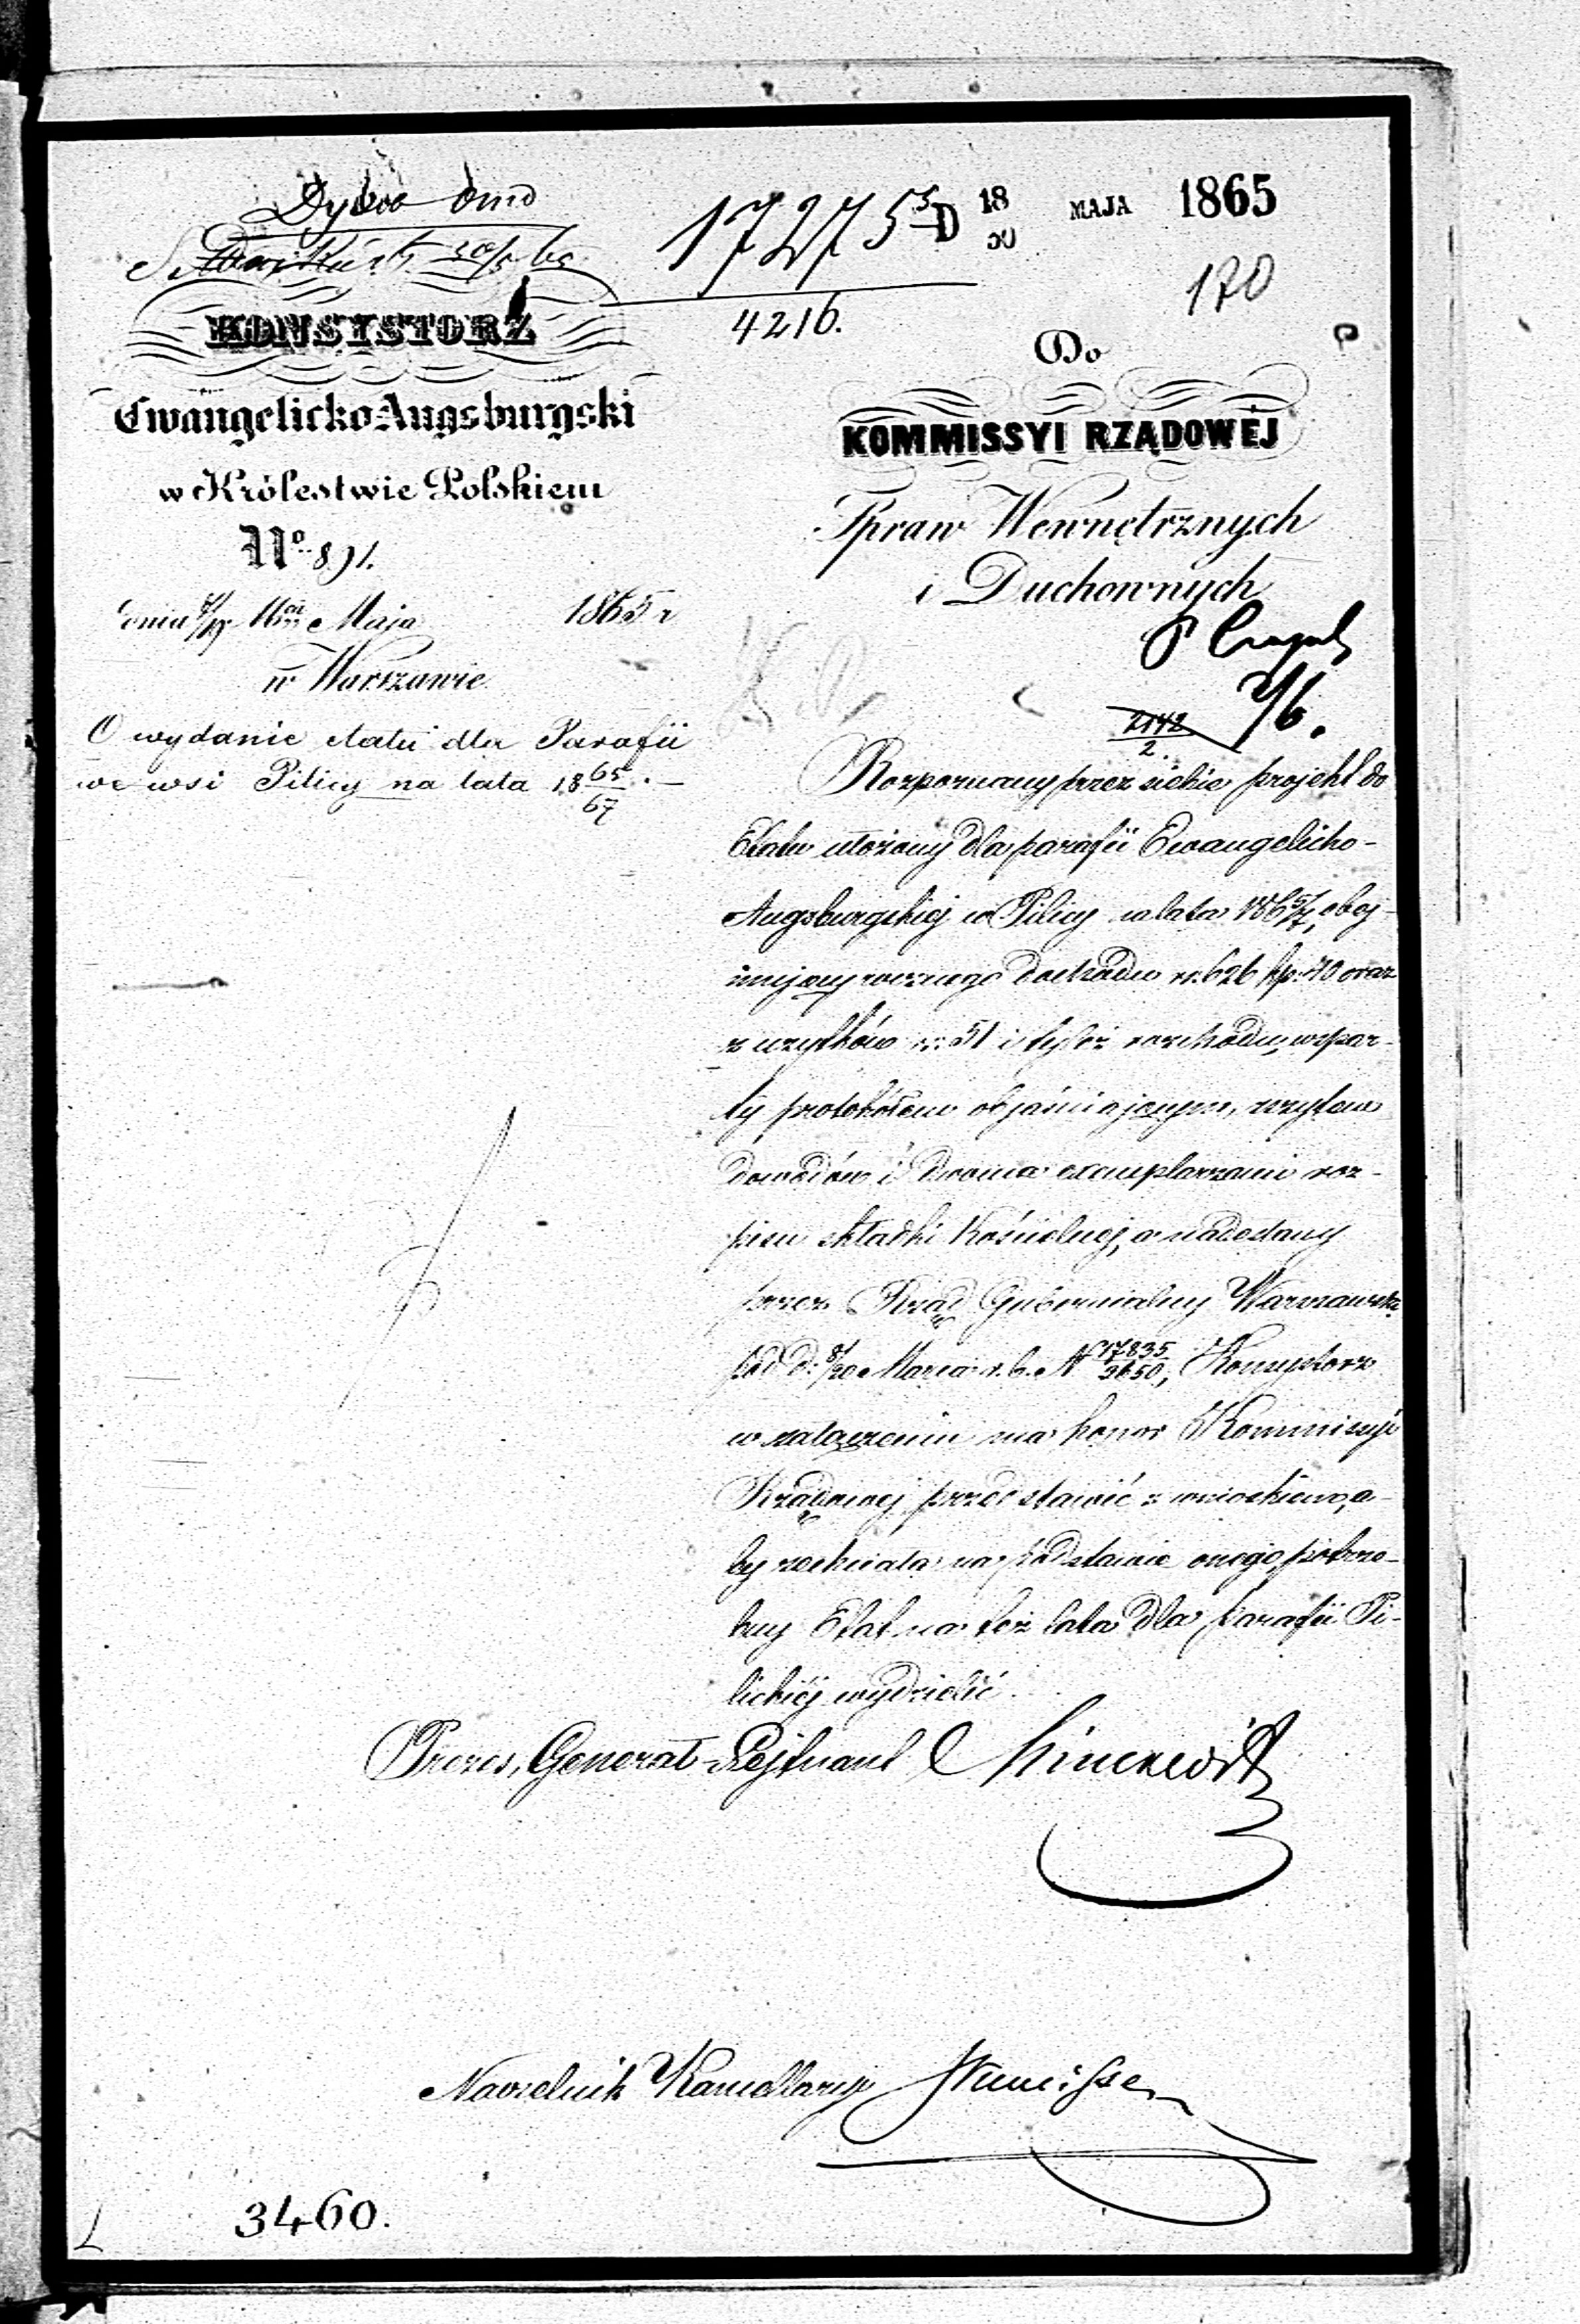 17275 D 18/30 MAJA 1865
4216.
170
KONSYSTORZ
Ewangelicko-Augsburgski
w Królestwie Polskiem
No 891.
dnia Maja 1865 r
w Warszawie
O wydanie etatu dla Parafii
we wsi Pilicy na lata 18 65/67.
Do
KOMMISSYI RZĄDOWÉJ
Spraw Wewnętrznych
i Duchownych
2142/2.
7/6.
Rozpoznany przez siebie projekt do
Etatu ułożony dla parafii Ewangelicko-
Augsburgskiej w Pilicy w lata 1865/7, obej-
mujący rocznego dochodu rs. 626 kp. 70 oraz
z użytków rs. 51 i tyleż rozchodu, wspar-
ty protokółem objaśniającym, zszytem
dowodów i dwoma exemplarzami roz-
pisu składki Kościelnej, a nadesłany
przez Rząd Gubernialny Warszawski
pod d: 8/20 Marca r. b. N 17835/3650, Konsystorz
w załączeniu ma honor Kommissyi
Rządowej przedstawić z wnioskiem, a-
by zechciała na podstawie onego, potrze-
bny Etat na też lata dla parafii Pi-
lickiéj wydzielić.
Prezes, Generał-Lejtnant
Naczelnik Kancellaryi
3460.